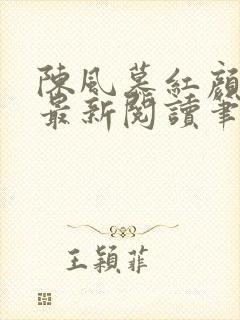 陳風慕紅顏
最新閱讀筆
王穎菲